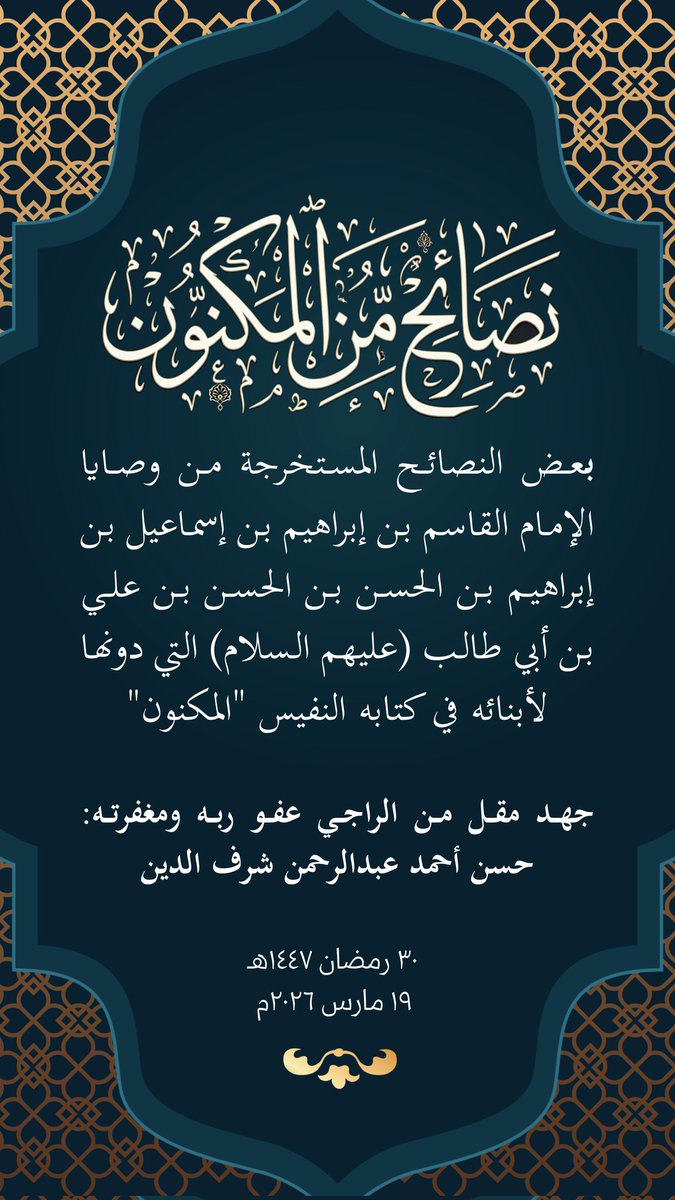 نَصَائِحُ مِّنَ الْمَكْنُوْنِ
بعض النصائح المستخرجة من وصايا
الإمام القاسم بن إبراهيم بن إسماعيل بن
إبراهيم بن الحسن بن الحسن بن علي
بن أبي طالب (عليهم السلام) التي دونها
لأبنائه في كتابه النفيس "المكنون"
جهد مقل من الراجي عفو ربه ومغفرته:
حسن أحمد عبدالرحمن شرف الدين
٣٠ رمضان ١٤٤٧هـ
١٩ مارس ٢٠٢٦م